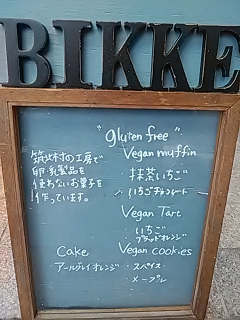 BIKKE
"gluten free"
Vegan muffin
・抹茶いちご
・いちごチョコレート
筑北村の工房で
卵・乳製品を
使わないお菓子を
作っています。
Vegan Tart
・いちご
ブラッドオレンジ
Cake
アールグレイオレンジ
Vegan cookies
・スパイス
・メープル